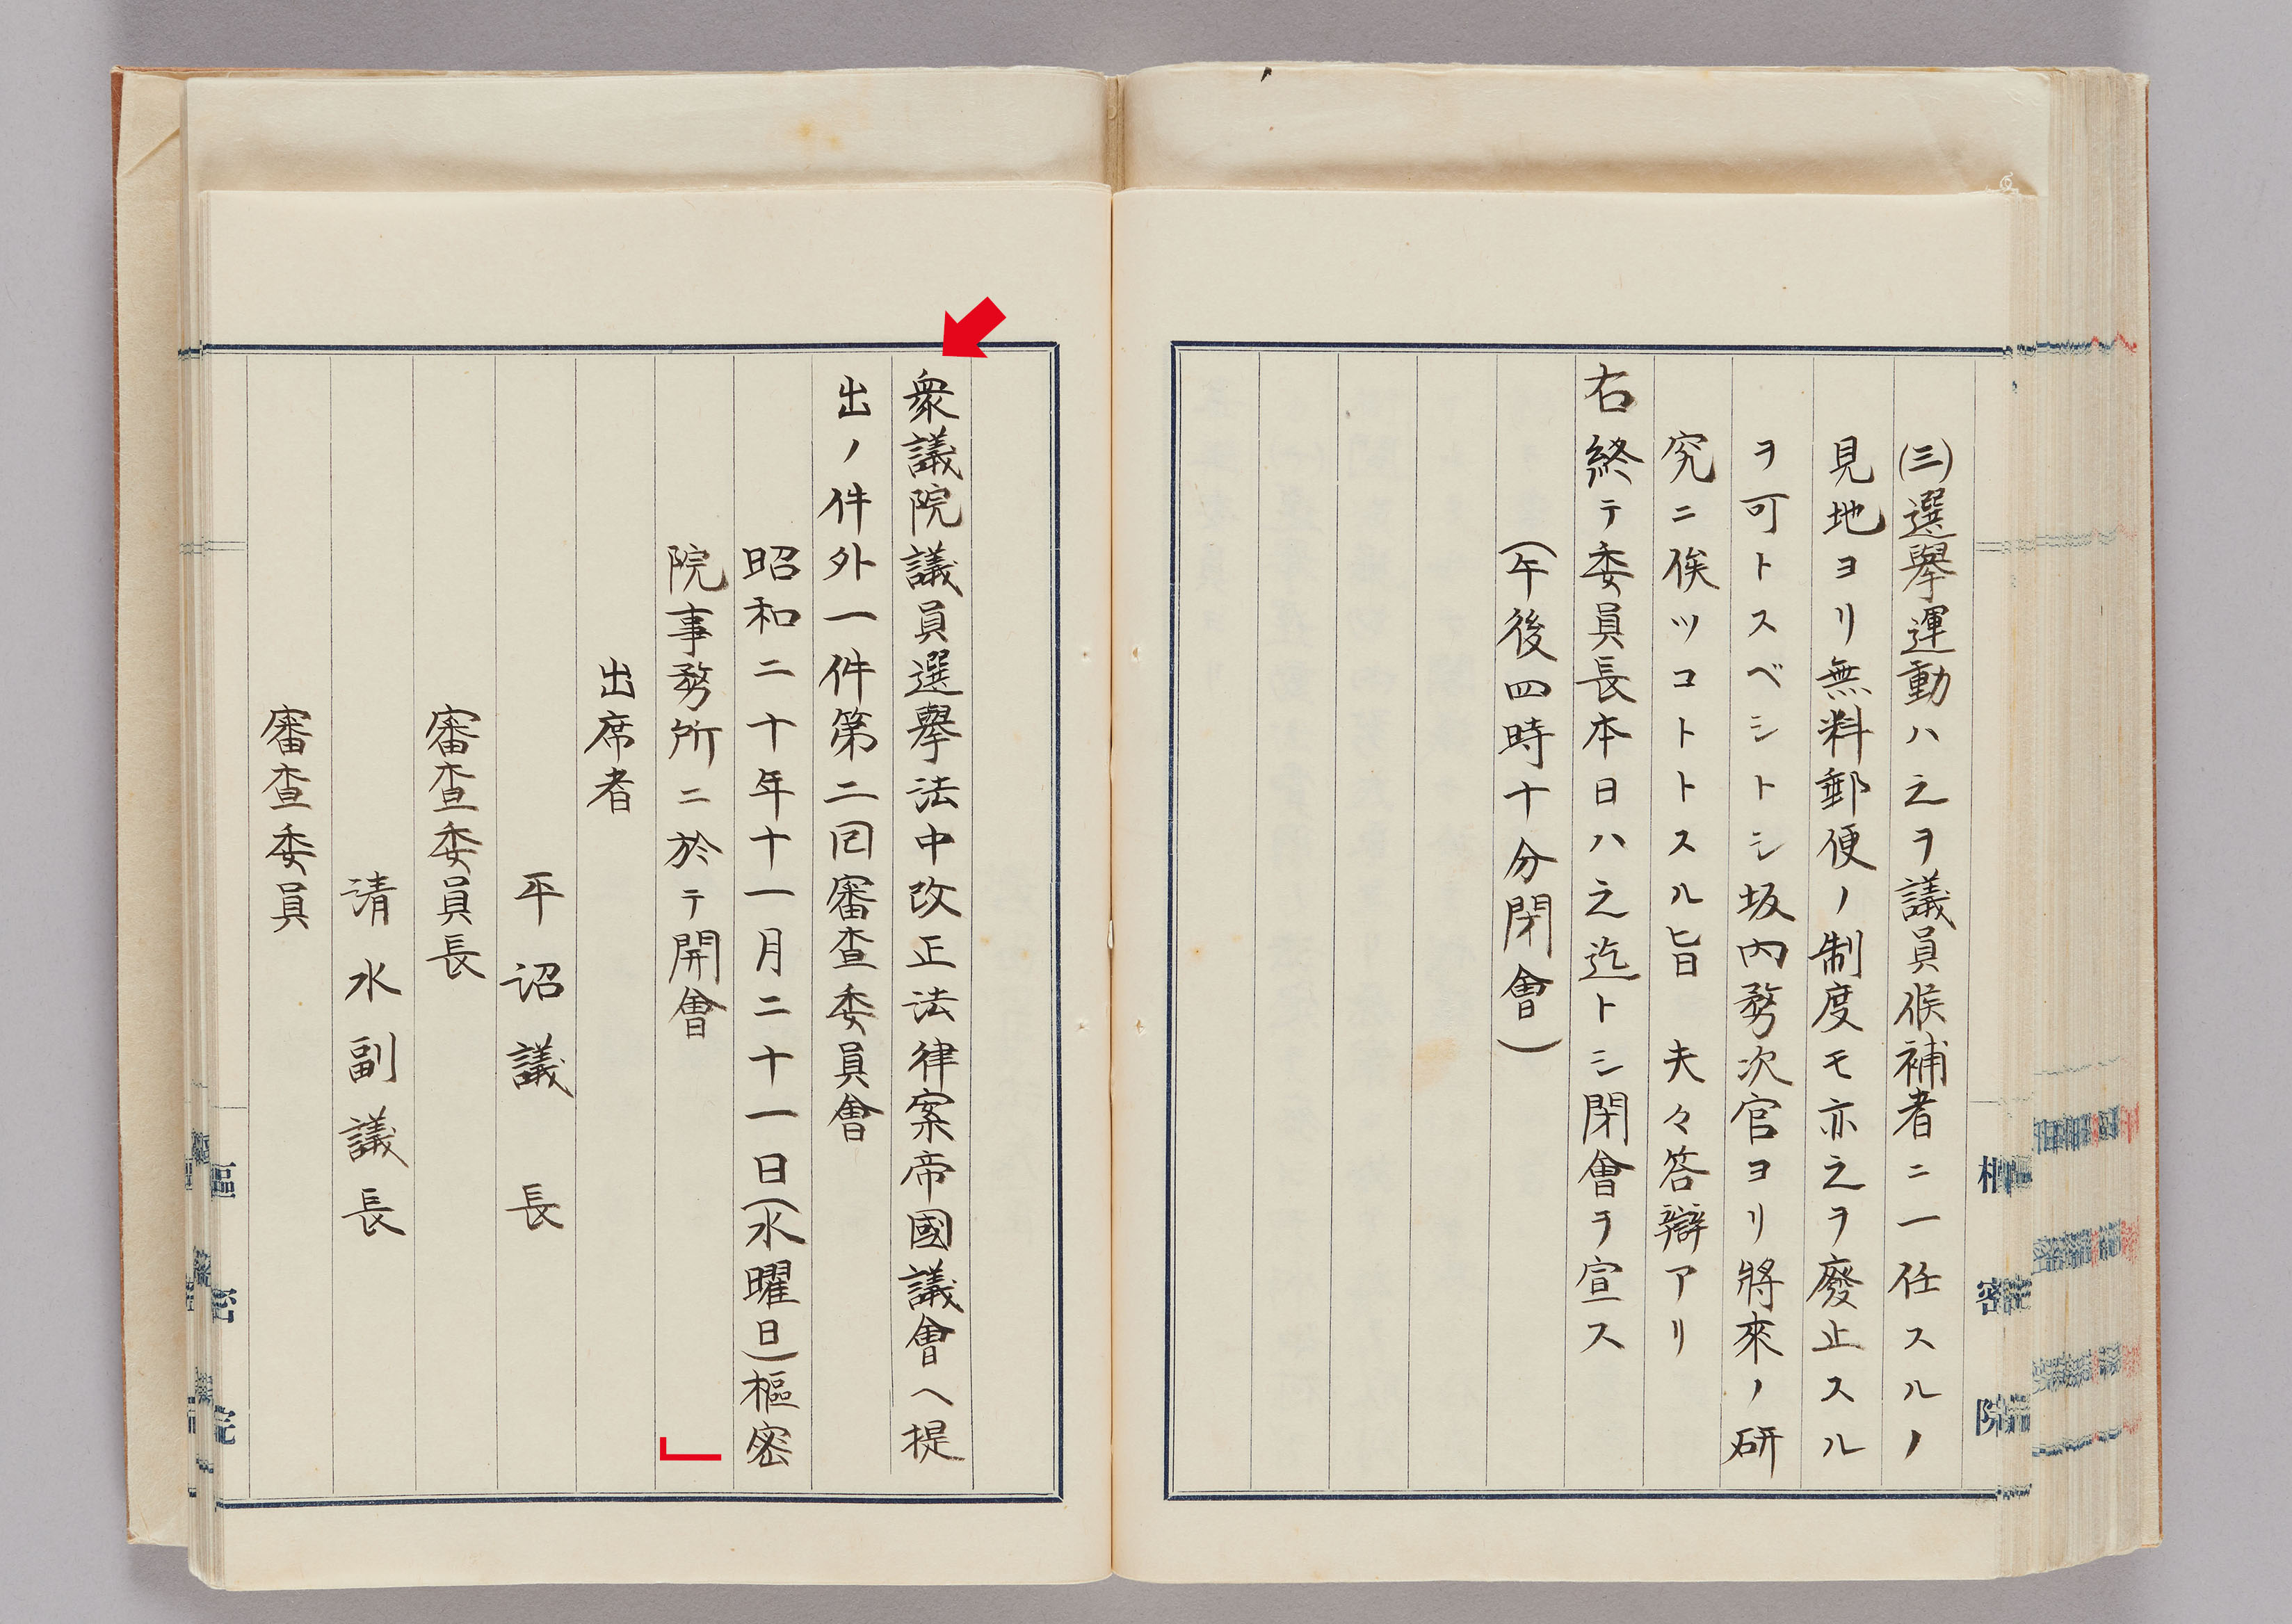 ㈢選擧運動ハ之ヲ議員候補者ニ一任スルノ
見地ヨリ無料郵便ノ制度モ亦之ヲ廢止スル
ヲ可トスベシトシ坂内務次官ヨリ將來ノ研
究ニ俟ツコトトスル旨 夫々答辯アリ
右終テ委員長本日ハ之迄トシ閉會ヲ宣ス
(午後四時十分閉會)
樞密院
衆議院議員選擧法中改正法律案帝國議會ヘ提
出ノ件外一件第二囘審査委員會
昭和二十年十一月二十一日(水曜日)樞密
院事務所ニ於テ開會
出席者
平沼議長
審査委員長
清水副議長
審査委員
樞密院